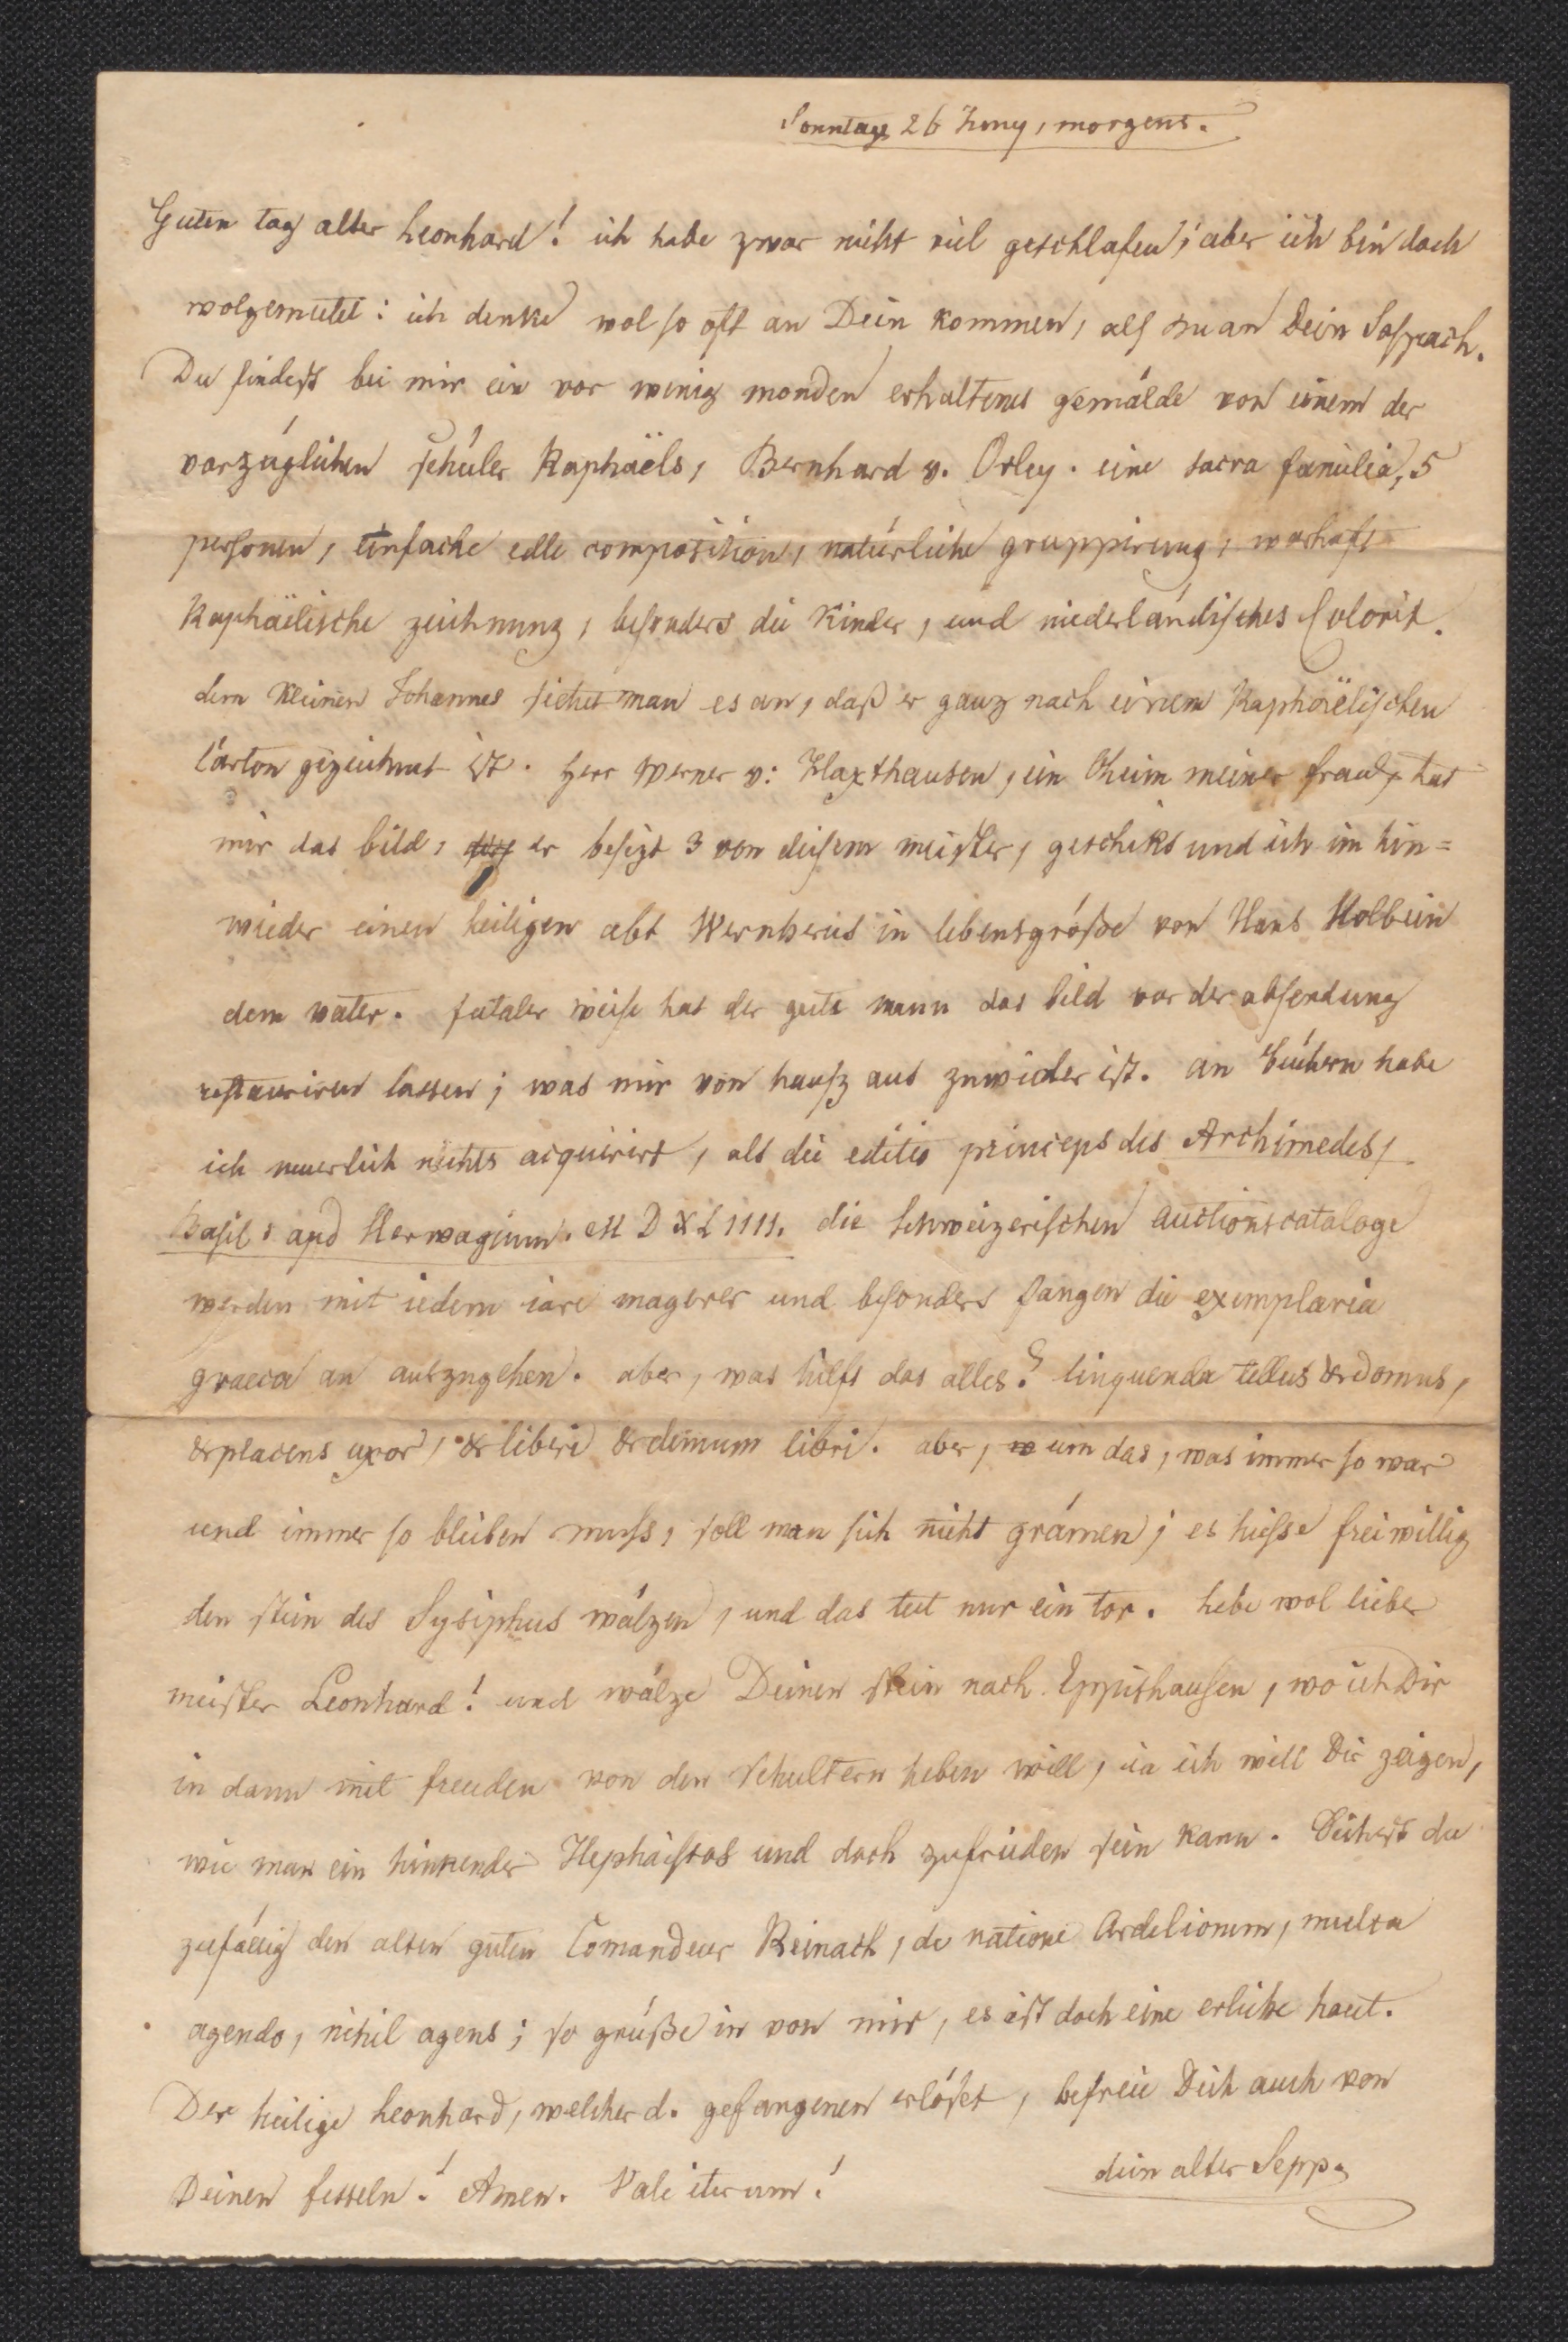 Sonntags 26 Juny, morgens.
Guten tag alter Leonhard! ich habe zwar nicht vil geschlafen; aber ich bin doch
wolgemutet: ich denke wol so oft an Dein kommen, als du an Dein Saſpach.
Du findest bei mir ein vor wenig monden erhaltenes gemälde von einem der
vorzüglichen schüler Raphaëls, Bernhard v. Orley. eine sacra familia, 5
personen, einfache edle composition, natürliche gruppirung, warhaft
Raphäelische zeichnung, besonders die Kinder, und niederländisches Colorit.
dem kleinen Johannes siehet man es an, daß er ganz nach einem Raphäelischen
Carton gezeichnet ist. Herr Werner v: Haxthausen, ein Oheim meiner frau, hat
mir das bild, er besizt 3 von diesem meister, geschikt und ich im hin=
wieder einen heiligen abt Wernherus in lebensgröße von Hans Holbein
dem vater. fataler weise hat der gute mann das bild vor der absendung
restauriren lassen; was mir von hausz aus zuwider ist. an büchern habe
ich neuerlich nichts acquirirt, als die editio princeps des Archimedes,
Basil: apd Hervagium. M D X L IIII. die schweizerischen auctionscataloge
werden mit iedem iare magerer und besonders fangen die exemplaria
graeca an auszugehen. aber, was hilft das alles? linquenda tellus & domus,
& placens uxor, & liberi & demum libri. aber, um das, was immer so war
und immer so bleiben muss, soll man sich nicht grämen; es hiesse freiwillig
den stein des Sysiphus wälzen, und das tut nur ein tor. lebe wol lieber
meister Leonhard! und wälze Deinen stein nach Eppishausen, wo ich Dir
in dann mit freuden von den schultern heben will, ia ich will Dir zeigen,
wie man ein hinkender Hephaistos und doch zufrieden sein kann. Siehest du
zufällig den alten guten Comandeur Reinach, de natione Ardelionum, multa
agendo, nihil agens; so grüße in von mir, es ist doch eine erliche haut.
Der heilige Leonhard, welcher d. gefangenen erlöset, befreie Dich auch von
Deinen fesseln! Amen. Vale iterum! dein alter Sepp.